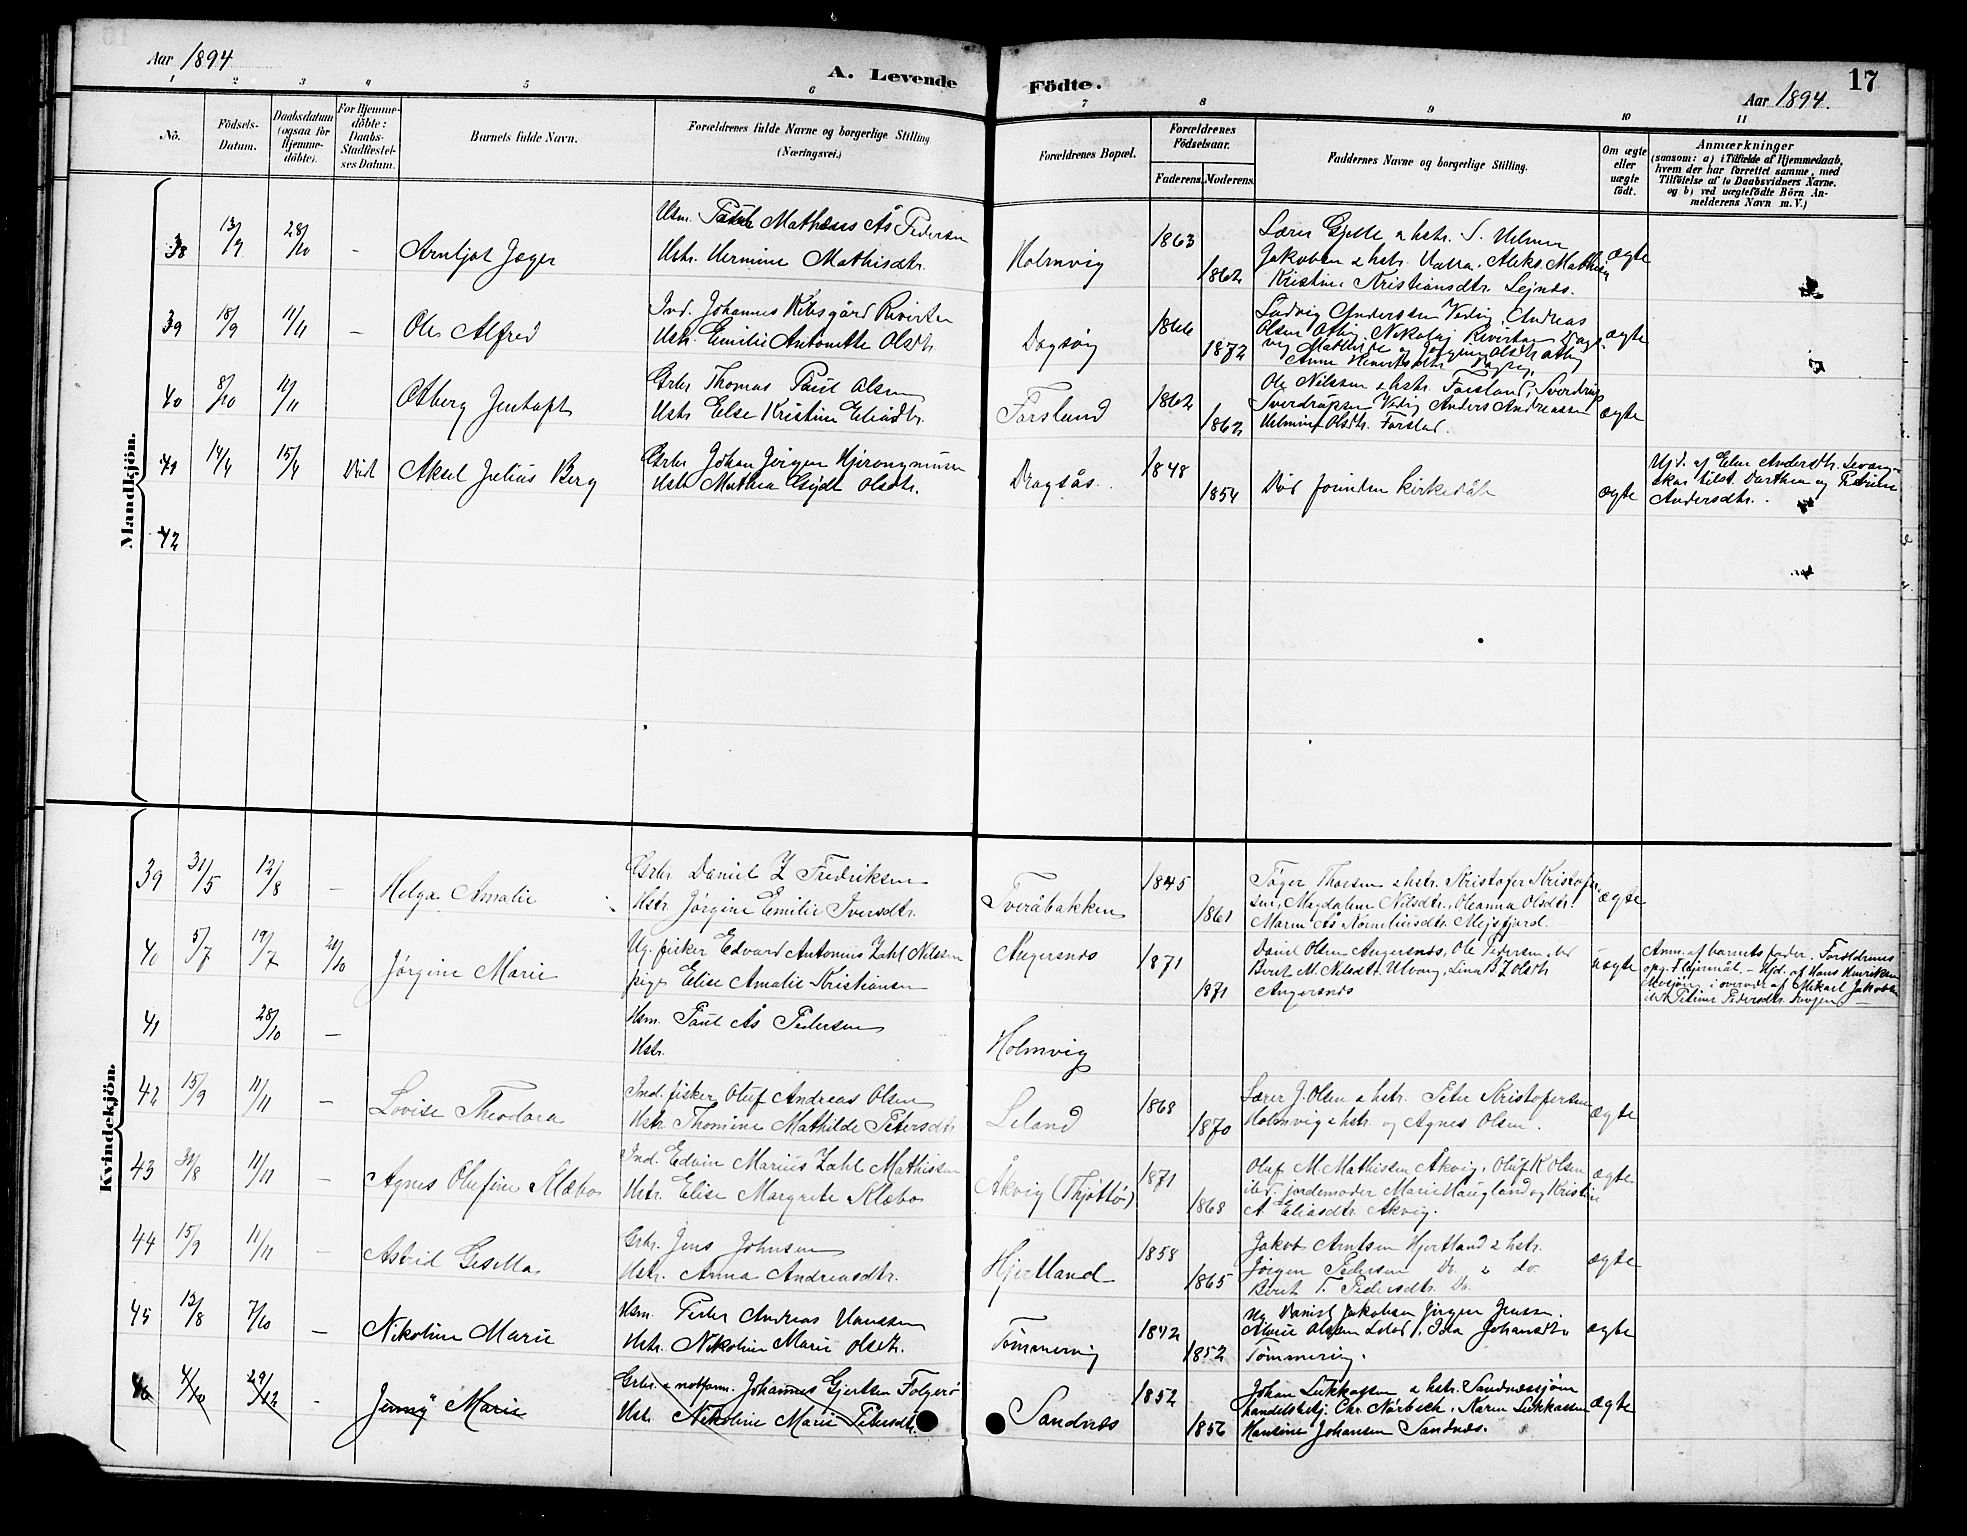 Aar 1894
A. Levende
Födte.
Aar 1894.
17
1 2 3 4 5 6 7 8 9 10 11
Nö.
Födsels-
Datum.
Daabsdatum
(ogsaa for
Hjemme-
döbte).
For Hjemme-
döbte:
Daabs-
Stadfæstel-
ses Datum.
Barnets fulde Navn.
Forældrenes fulde Navne og borgerlige Stilling
(Næringsvei.)
Forældrenes Bopæl.
Forældrenes
Födselsaar.
Faderens. Moderens.
Faddernes Navne og borgerlige Stilling.
Om ægte
eller
uægte
födt.
Anmærkninger
(saasom: a) i Tilfælde af Hjemmedaab,
hvem der har forrettet samme, med
Tilföielse af to Daabsvidners Navne.
og b) ved uægtefödte Börn An-
melderens Navn m. V.)
Mandkjön.
38 13/9 28/10 - Arnljot Jæger
Hsm. Paul Mathæus Ås Pedersen
Hstr. Hermine Mathisdtr.
Holmvig 1863 1862
Lærer Gjelle & hstr. S. Helmer
Jakobsen & hstr. Aleks. Mathisen
Kristine Kristiansdtr. Lejnæs.
ægte
39 18/9 11/11 - Ole Alfred
Ind. Johannes Ribsgård Rivertz
Hstr. Emilie Antonette Olsdtr.
Dagsvig 1866 1872
Ludvig Anderssen Vedig, Andreas
Olsen Nikolaj Rivertz Dags-
vig Mathilde og Jørgine Olsdtr
Anne
ægte
40 8/10 11/11 Otberg Jentoft
Grbr Thomas Paul Olsen
Hstr Else Kristine Eliasdtr.
Forslund 1862 1862
Ole Nilssen & hstr. Forsland, Sverdrup
Sverdrupsen Vedig Anders Andreassen
Helmine Olsdtr. Forslad.
ægte
41 14/4 15/4 Död Aksel Julius Berg
Grbr Johan Jörgen Hjeronymusen
Hstr Mathea Gjyde Olsdtr.
Dragsås. 1848 1854
Död forinden kirkedåb
ægte
Hjd. af Elen Andersdtr. Levang-
Dorthea og Petrine
Andersdtr.
42
Kvindekjön.
39 31/5 12/8 - Helga Amalie
Grbr Daniel Z Fredriksen
Hstr Jørgine Emilie Iversdtr.
Tveråbakken 1845 1861
Töger Thorsen & hstr. Kristofer Kristofer-
sen, Magdalene Nilsdtr., Oleanna Olsdtr
Maren Ås Korneliusdtr. Mejsfjord.
ægte
40 5/7 19/7 28/10 Jørgine Marie
Ug. fisker Edvard Antonius Zahl Nilssen
pige Elise Amalie Kristiansen
Angersnæs 1871 1871
Daniel Olsen Angersnæs, Ole Pedersen ibd
Beret M. Nilsdtr. Ulvang, Lina B Z Olsdtr
Angersnæs
uægte
Anm. af barnets fader. Forældrenes
Hjd. af Hans Henriksen
i overvær af Mikael Jakobsen
Petrine Pedersdtr.
41 28/10 -
Hsm. Paul Ås Pedersen
Hstr.
Holmvig
42 15/9 11/11 - Lovise Theodora
Ind. fisker Oluf Andreas Olsen
Hstr Thomine Mathilde Petersdtr
Leland 1868 1870
Lærer J. Olsen & hstr. Peter Kristofersen
Holmvig & hstr. og Agnes Olsen.
ægte
43 30/8 11/11 - Agnes Olufine Klæbo
Ind. Edvin Marius Zahl Mathissen
Hstr. Elise Margrete Klæbo
Åkvig (Thjöttö) 1871 1868
Oluf M. Mathissen Åkvig, Oluf K Olsen
ibd. jordemoder Marie Haugland og Kristine
A. Eliasdtr. Åkvig.
ægte
44 15/9 11/11 - Astrid Gisella
Grbr. Jens Johnsen
Hstr. Anna Andreasdtr.
Hjertland 1858 1865
Jakob Arntsen Hjertland & hstr.
Jörgen Pedersen Do. & do
Beret T. Pedersdtr. Do.
ægte
45 12/8 7/10 - Nikoline Marie
Hsm. Peter Andreas Hanssen
Hstr. Nikoline Marie Olsdtr.
Tömmervig 1842 1852
Ug Daniel Jakobsen Jörgen Jenssen.
Marie Olssen Leland, Ida Johansdtr
Tömmervig.
ægte
46 4/10 29/12 - Jenny Marie
Grbr. & notform. Johannes Gjertsen Folgerö
Hstr. Nikoline Marie Petersdtr.
Sandnæs 1852 1856
Johan Lukkassen & hstr. Sandnæssjöen
handelsbetj. Chr. Nörbech, Karen Lukkassen
Hansine Johansen Sandnæs.
ægte